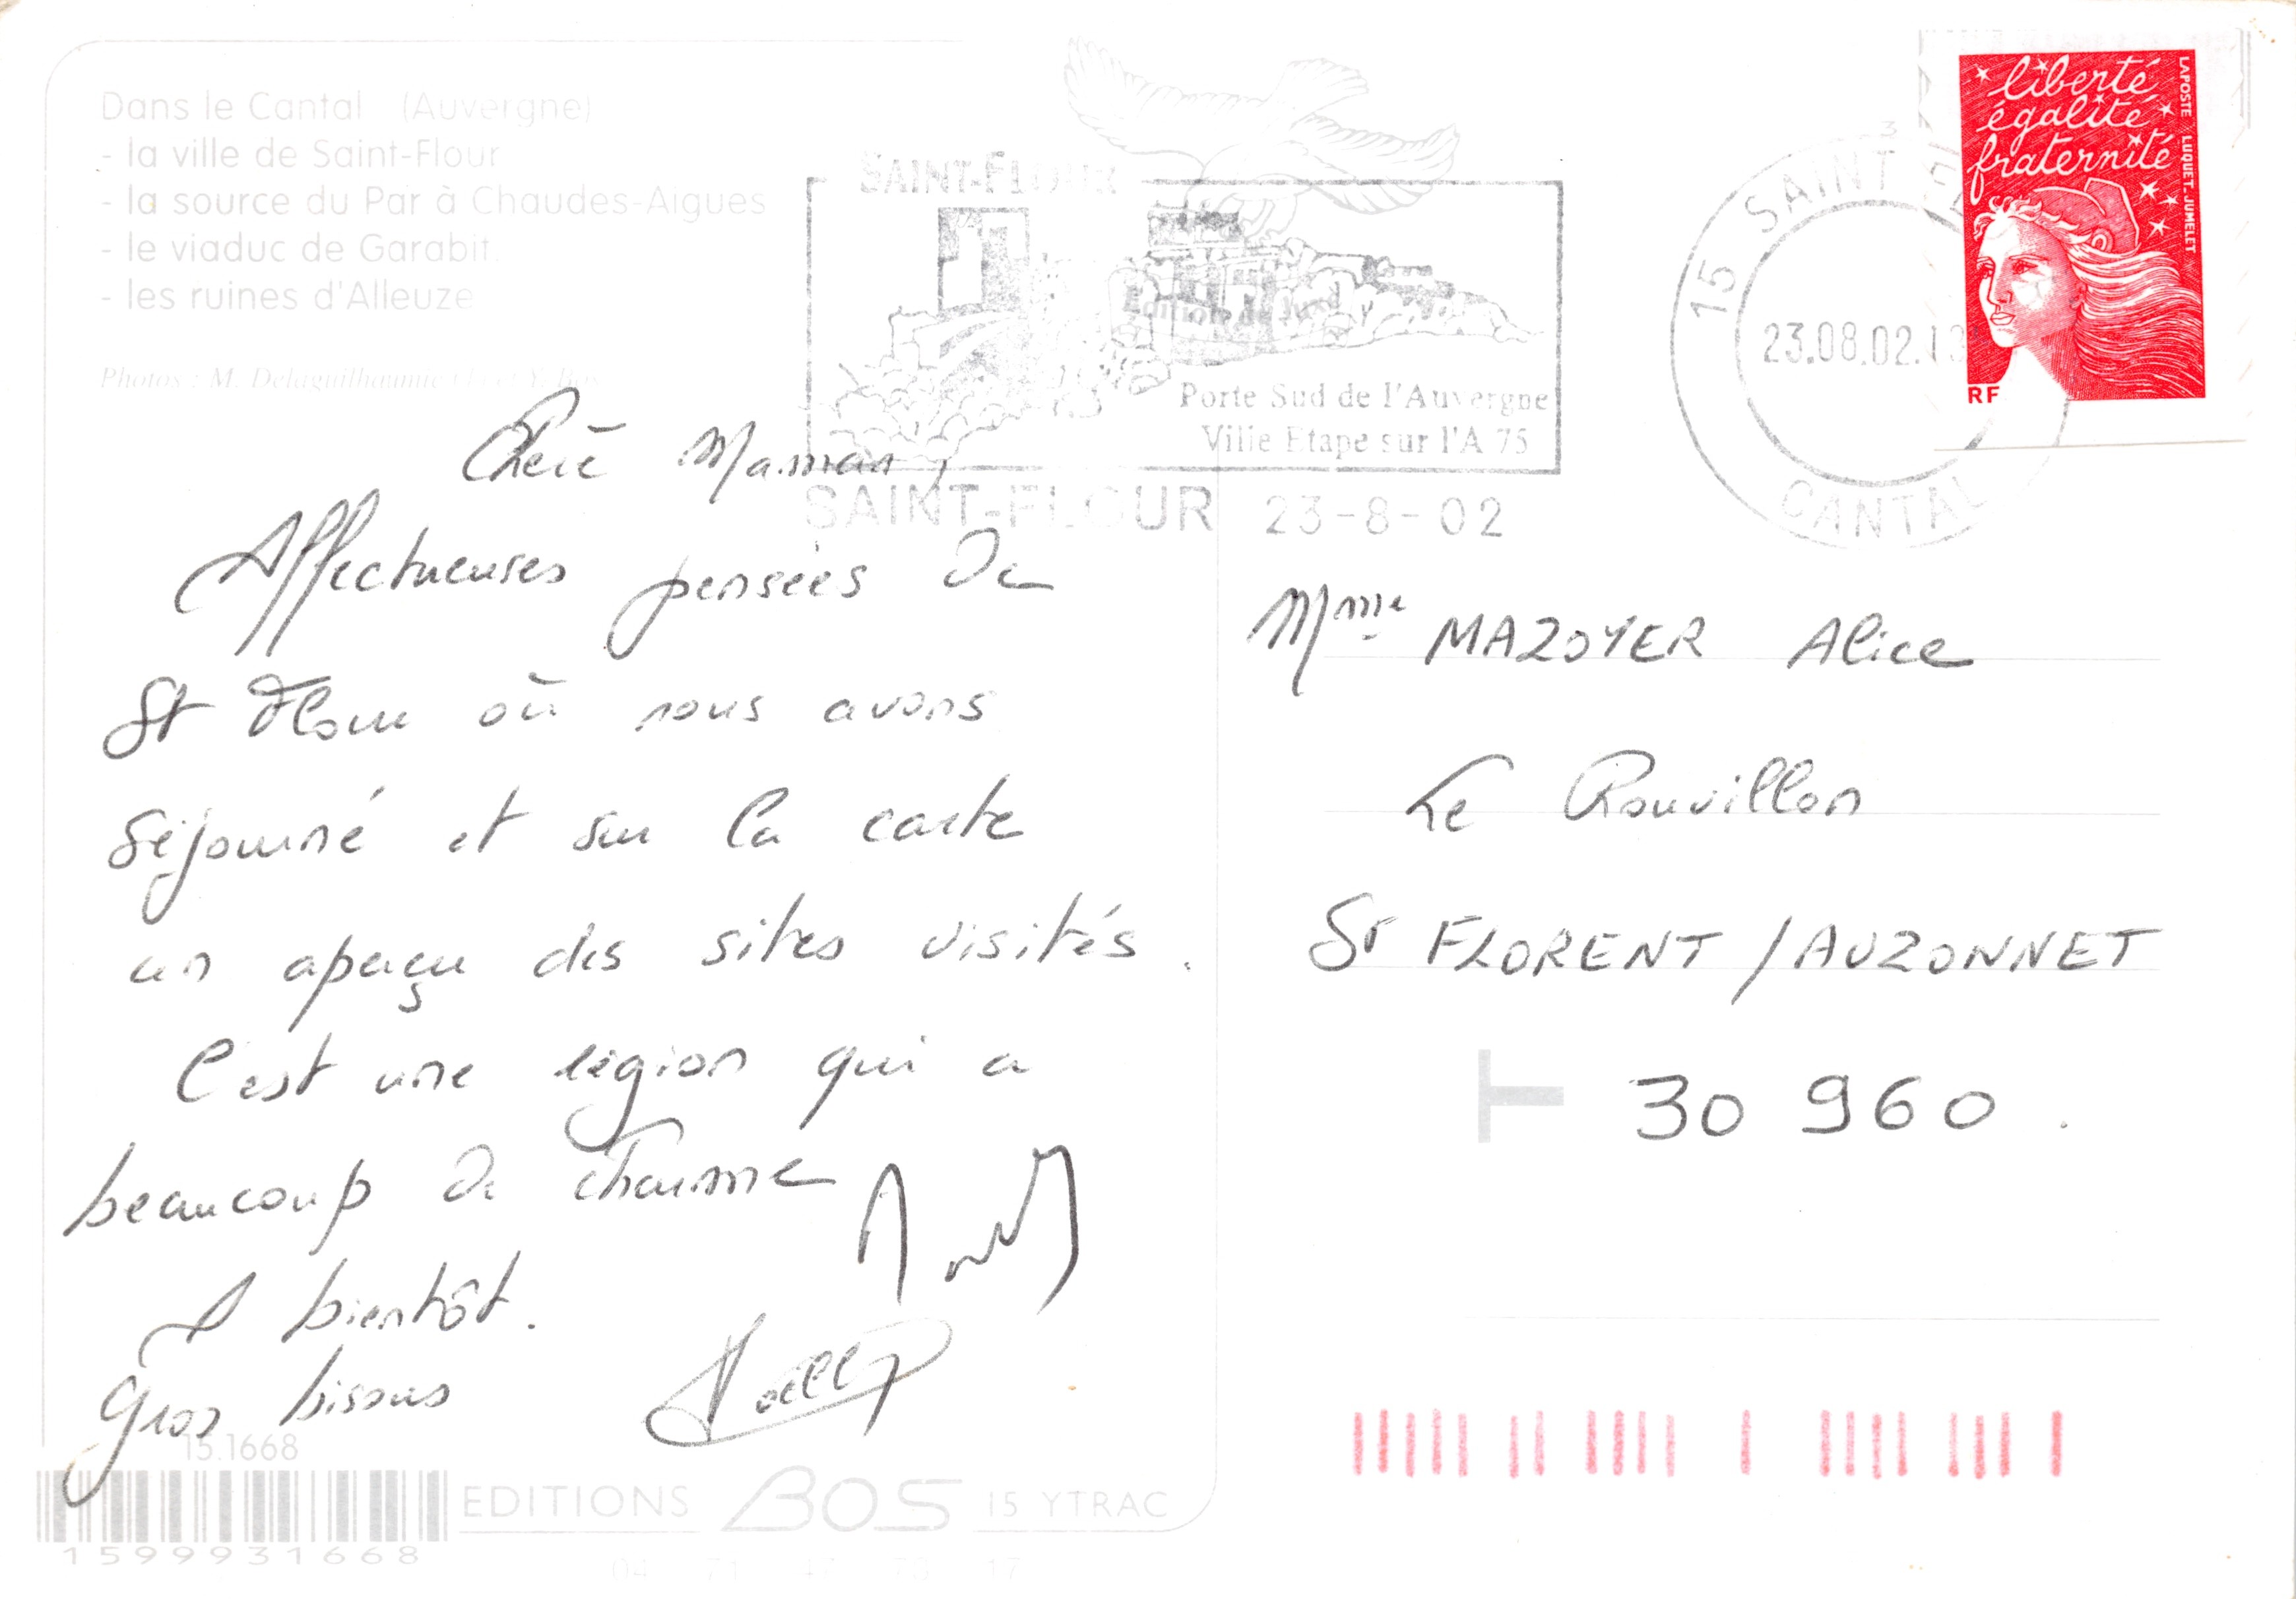 Dans le Cantal (Auvergne)
- la ville de Saint-Flour
- la source du Par à Chaudes-Aigues
- le viaduc de Garabit.
- les ruines d'Alleuze
Photos : M. Delaguilhaumie
SAINT-FLOUR
Porte Sud de l'Auvergne
Ville Etape sur l'A 75
SAINT-FLOUR 23-8-02
15 SAINT
23.08.02
CANTAL
liberté
égalité
fraternité
LA POSTE LUQUET-JUMELET
RF
Chère Maman,
Affectueuses pensées de
St Flour où nous avons
séjourné et sur la carte
un aperçu des sites visités.
C'est une région qui a
beaucoup de charme
A bientôt.
Gros bisous
Mme MAZOYER Alice
Le Rouvillon
St FLORENT / AUZONNET
T
30 960.
15.1668
1599931668
EDITIONS BOS 15 YTRAC